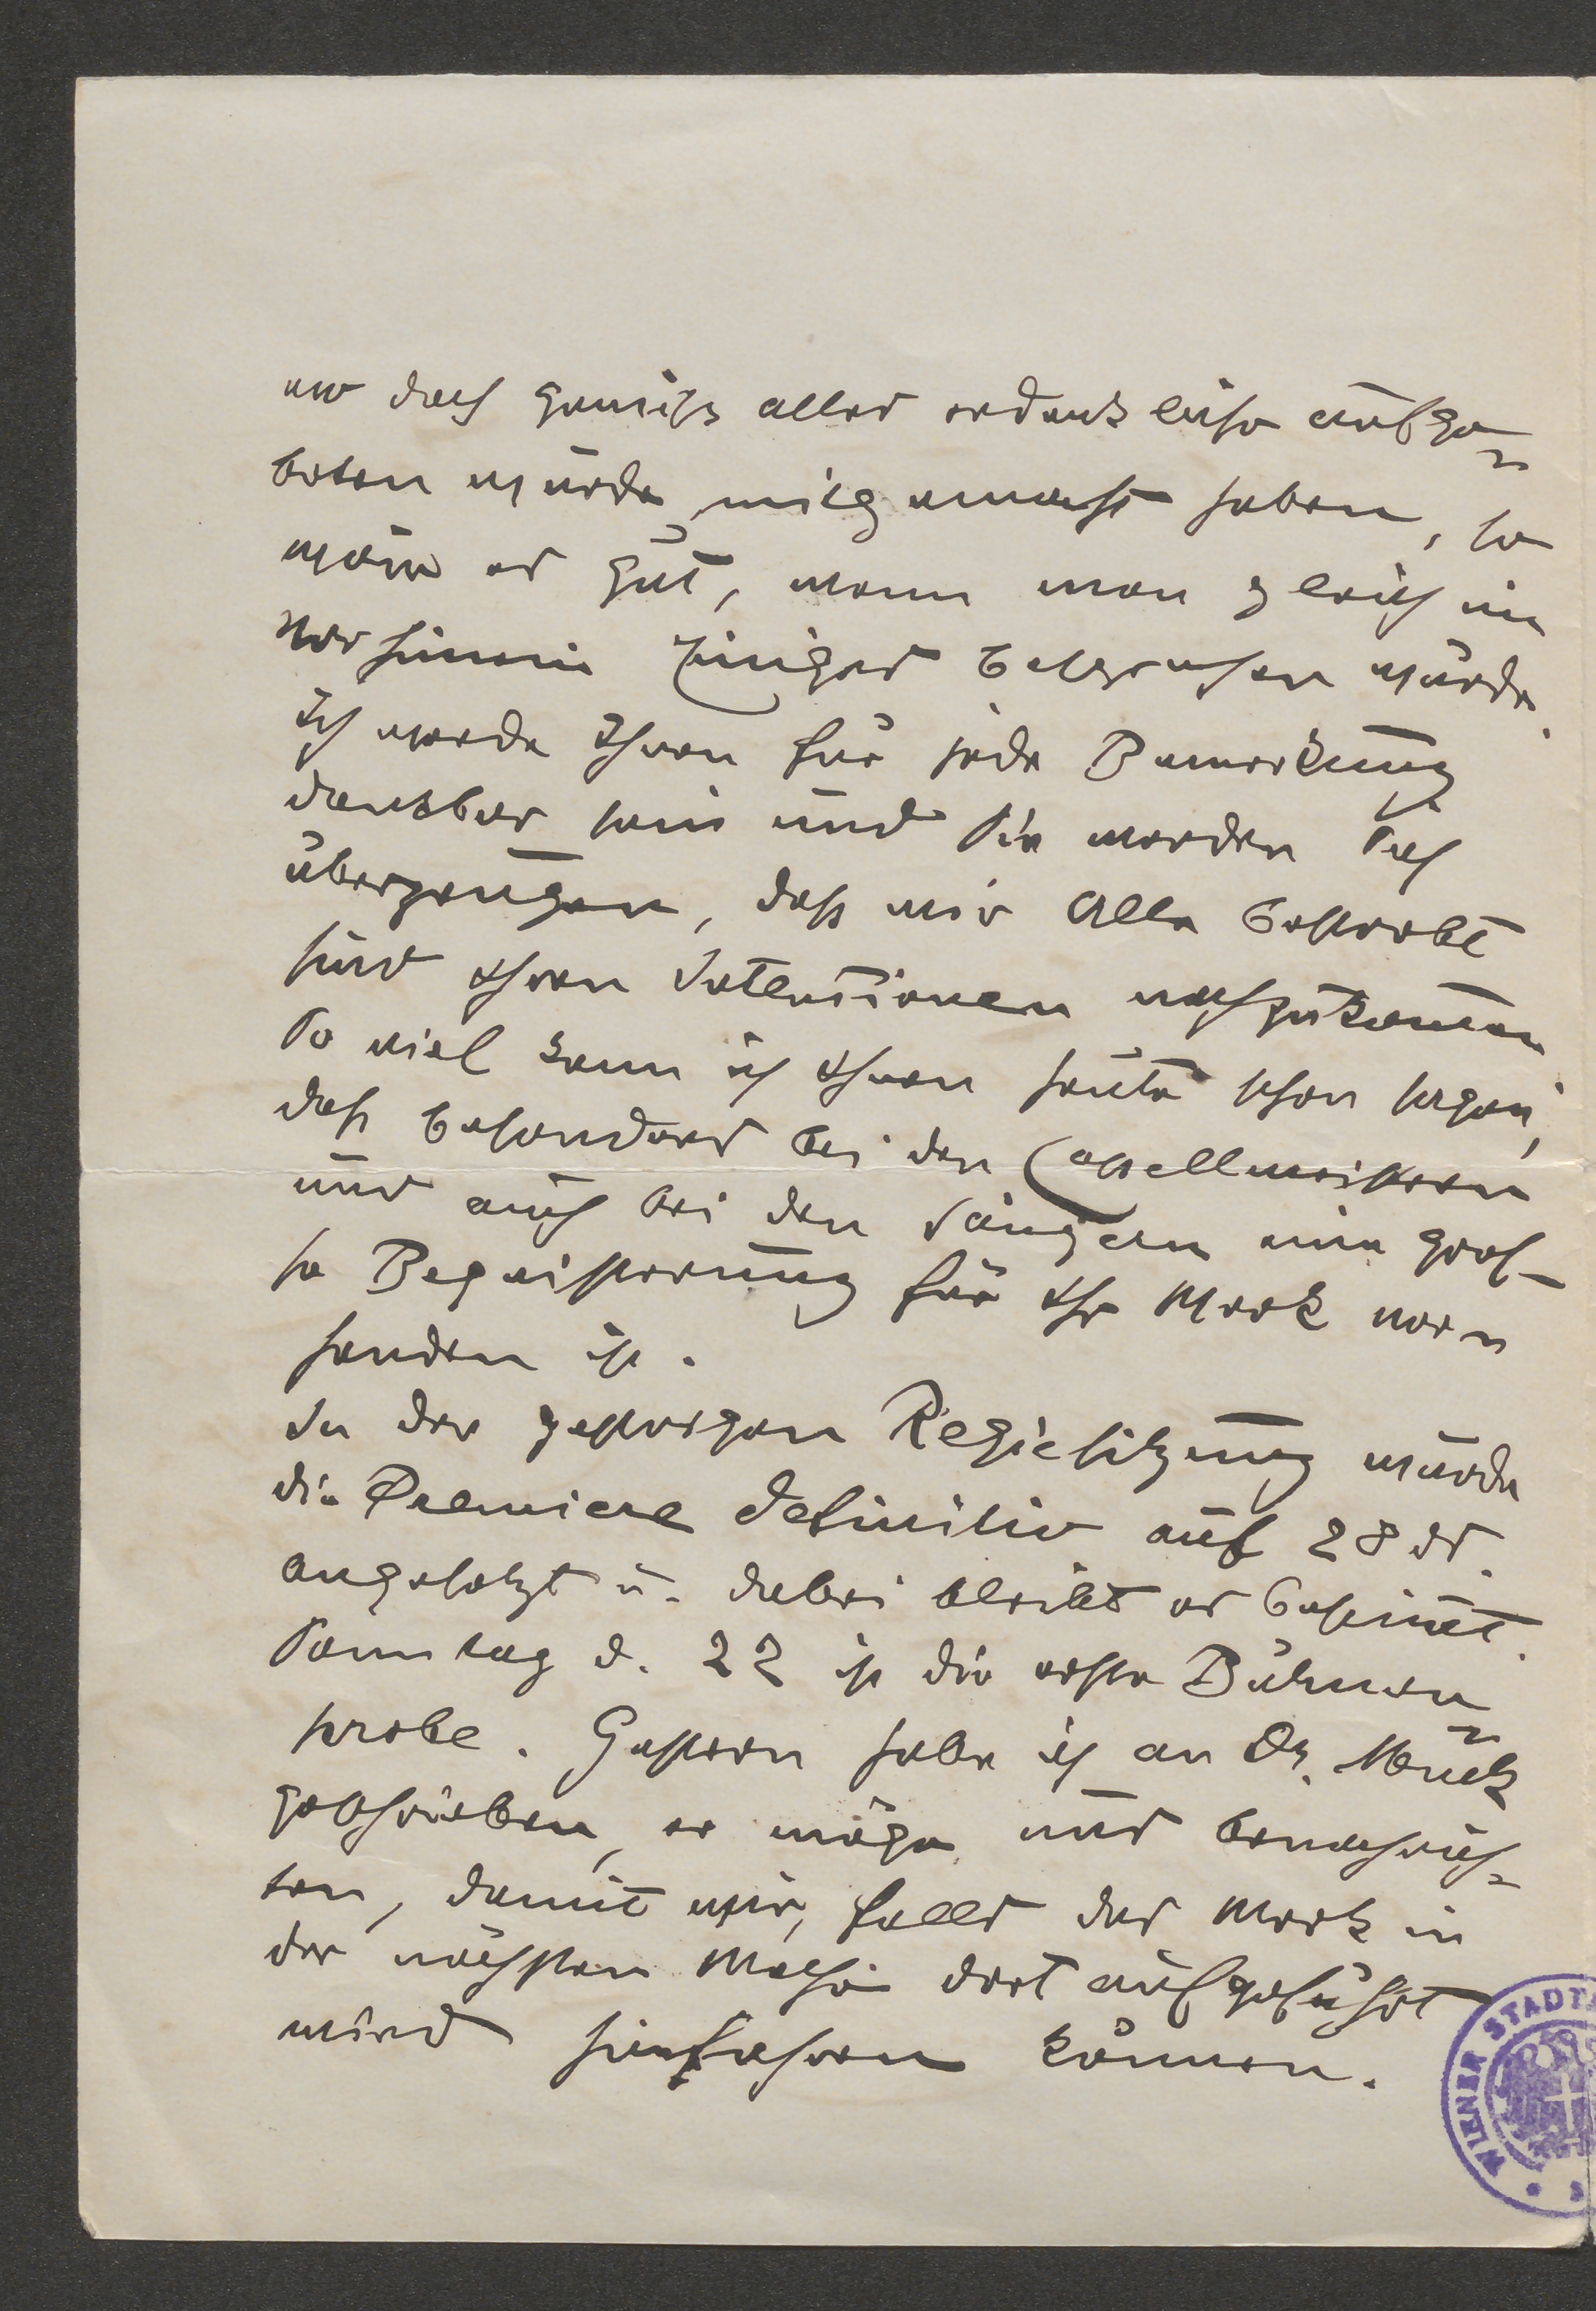 wo doch gewiss alles erdenkliche aufge=
boten würde mitgemacht haben, so
wäre es gut, wenn man gleich im
vorhinein Einiges besprechen würde.
Ich werde Ihnen für jede Bemerkung
dankbar sein und Sie werden sich
überzeugen, dass wir Alle bestrebt
sind Ihren Intentionen nachzukommen
So viel kann ich Ihnen heute schon sagen,
dass besonders bei den Capellmeistern
und auch bei den Sängern eine gros-
se Begeisterung für Ihr Werk vor=
handen ist.
In der gestrigen Regiesitzung wurde
die Premiere definitiv auf 28 ds.
angesetzt u. dabei bleibt es bestimt.
Sonntag d. 22 ist die erste Bühnen=
probe. Gestern habe ich an Dr. Muck
geschrieben, er möge uns benachrich=
ten, damit wir, falls das Werk in
der nächsten Woche dort aufgeführt
wird hinfahren können.
WIENER STADT